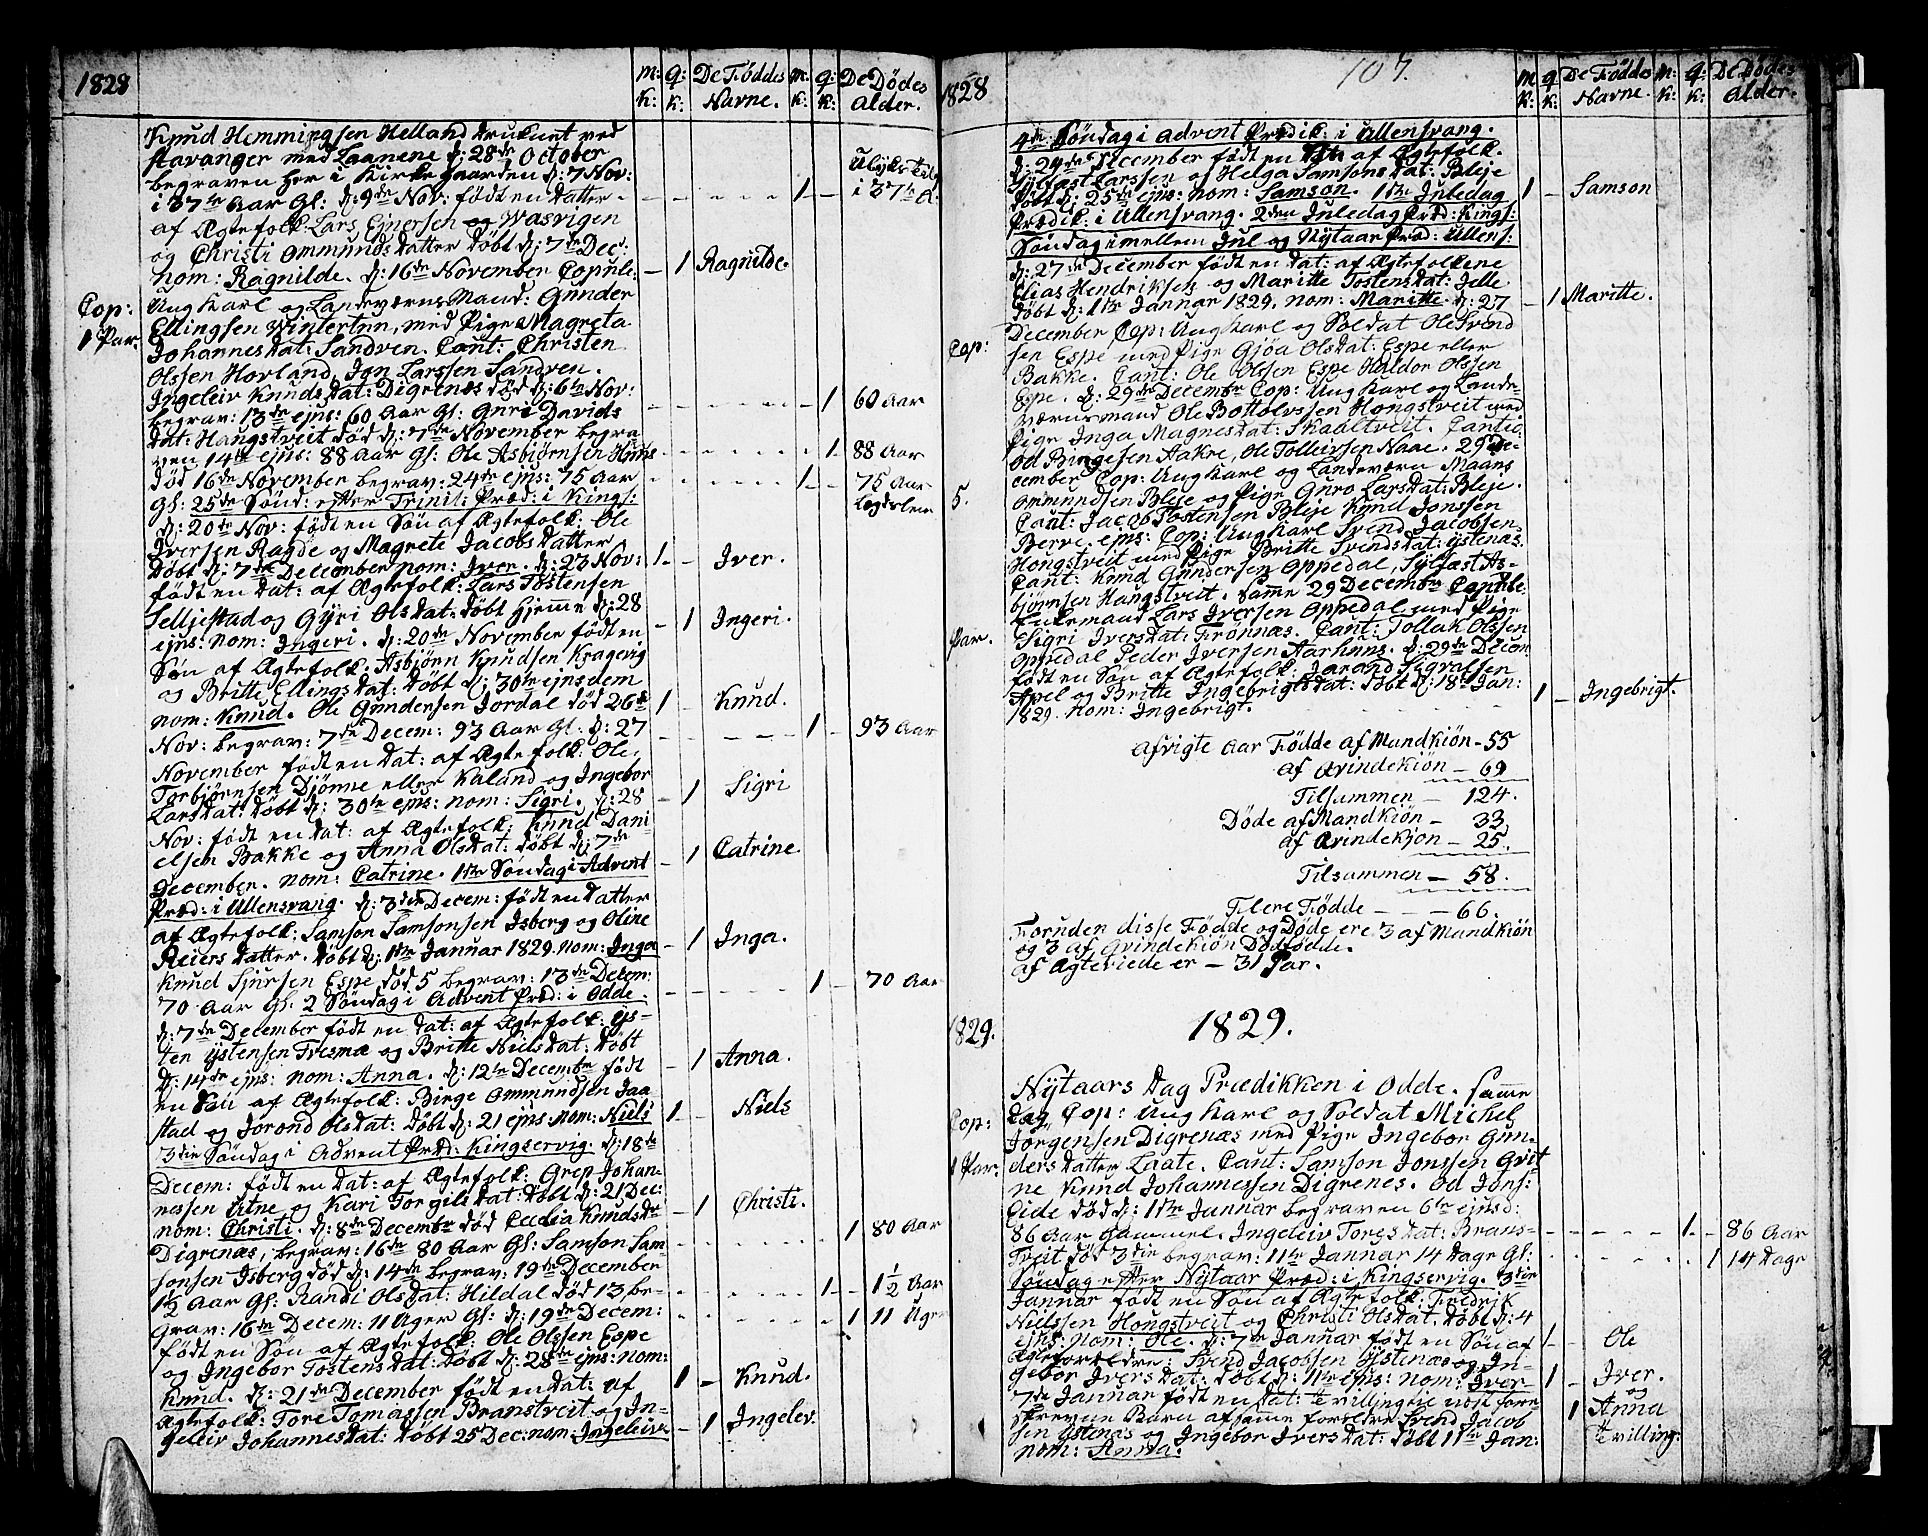 1828
m: K:
q: K:
De Føddes Navne.
m: K:
q: K:
De Dødes Alder.
Knud Hemmingsen Helland druknet ved
Stavanger med Laanene d: 28de October
begraven her i Kirkegaarden d: 7 Nov:
i 37te Aar Gl: d: 9de Nov: født en Datter
1 - i 37te A:
af Ægtefolk: Lars Ejnersen Wasvigen
og Christi Ommunds datter døbt d: 7de Dec:
nom: Ragnilde. d: 16de November Copule:
- 1 Ragnilde.
Cop: 1 Par.
Ung Karl og Landeværns Mand: Gunder
Ellingsen Wintertun, med Pige Magreta
Johannesdat: Sandven. Caut: Christen
Olssen Hovland, Jon Larssen Sandven.
Ingeleiv Knudsdat: Digrenæs død d: 6te Nov:
begrav: 13de ejns: 60 Aar Gl: Guri Davids
- 1 60 Aar
dat: Haugstveit død d: 7de November begra-
ven 14de ejns: 88 Aar Gl: Ole Asbjørnsen Huus
1 88 Aar
død 16de November begrav: 24de ejns: 75 Aar
1 - 75 Aar
Gl: 25de Sønd: efter Trinit: Præd: i Kings:
d: 20de Nov: født en Søn af Ægtefolk: Ole
Iversen Ragde og Magrete Jacobs datter
døbt d: 7de December nom: Iver. d: 23 Nov:
1 - Iver.
født en dat: af Ægtefolk: Lars Tostensen
Selljestad og Gyri Olsdat: døbt hjemme d: 28
ejns: nom: Ingeri. d: 20de November født en
- 1 Ingeri.
Søn af Ægtefolk. Asbjørn Knudsen Kragevig
og Britte Ellingsdat: døbt d: 30te ejnsdem
nom: Knud. Ole Gundersen Jordal død 26de
1 - Knud.
Nov: begrav: 7de Decem: 93 Aar Gl: d: 27
1 - 93 Aar
November født en dat: af Ægtefolk: Ole
Torbjørnsen Djønne eller Kaland og Ingebor
Larsdat: døbt d: 30te ejns: nom: Sigri. d: 28
- 1 Sigri
Nov: født en dat: af Ægtefolk: Knud Dani-
elsen Bakke og Anna Olsdat: døbt d: 7de
December. nom: Catrine. 1ste Søndag i Advent
- 1 Catrine.
Præd: i Ullensvang. d: 3die Decem: født en datter
af Ægtefolk: Samson Samsonsen Isberg og Oline
Reiers datter. døbt d: 1ste Januar 1829. nom: Inga
- 1 Inga.
Knud Sjursen Espe død 5 begrav: 13de Decem:
70 Aar Gl: 2 Søndag i Advent Præd: i Odde.
1 - 70 Aar
d: 7de December født en dat: af Ægtefolk: Øjs-
ten Øjstensen Tresmæ og Britte Nielsdat: døbt
d: 14de ejns: nom: Anna. d: 12te December født
- 1 Anna.
en Søn af Ægtefolk: Birge Ommundsen Jaa
stad og Jorond Olsdat: døbt d: 21 ejns nom: Niels
1 - Niels
3die Søndag i Advent Præd: Kingservig. d: 18de
Decem: født en dat: af Ægtefolk: Grep Johan-
nessen Utne og Kari Torgilsdat: døbt d: 21 Dec:
nom: Christi. d: 8de December død Cecilia Knudsdt
- 1 Christi.
Digrenæs, begrav: 16de 80 Aar Gl: Samson Sam
1 80 Aar
sonsen Isberg død d: 14de begrav: 19de December
1½ Aar Gl: Randi Olsdat: Hildal død 13 be-
1 - 1½ Aar
Grav: 16de Decem: 11 Uger Gl: d: 19de Decem:
1 11 Uger
født en Søn af Ægtefolk: Ole Olssen Espe
og Ingebor Tostensdat: døbt d: 28de ejns: nom:
Knud. d: 21de December født en dat: af
1 - Knud.
Ægtefolk: Tore Tomassen Branstveit og In-
geleiv Johannesdat: døbt 25 Dec: nom: Ingeleiv
- 1 Ingelev.
1828
107.
m: K:
q: K:
De Føddes Navne.
m: K:
q: K:
De Dødes Alder.
4de Søndag i Advent Prædik: i Ullensvang.
d: 24de December født en Søn af Ægtefolk.
Sylfæst Larssen og Helga Samsonsdat: Bleje
døbt d: 25de ejns: nom: Samson. 1ste Juledag
1 - Samson
Prædik: i Ullensvang. 2den Juledag Præd: Kings:
Søndag imellem Jul og Nytaar Præd: Ullens:
d: 27de December født en dat: af Ægtefolkene
Elias Hendriksen og Maritte Tostensdat: Jelle
døbt d: 1ste Januar 1829. nom: Maritte. d: 27
- 1 Maritte.
Cop:
December Cop: Ung Karl og Soldat Ole Svend
sen Espe med Pige Gjøa Olsdat: Espe eller
Bakke. Caut: Ole Olssen Espe Haldor Olssen
Espe. d: 29de Decembr Cop: Ung Karl og Lande-
værnsmand Ole Bottolvssen Hongstveit med
Pige Inga Magnesdat: Skaaltveit. Cautio:
Od Bingesen Aakre, Ole Tolleivsen Naae. 29 De-
cember Cop: Ung Karl og Landeværn Maans
5.
Ommundsen Bleje og Pige Guro Larsdat: Bleje.
Caut: Jacob Tostensen Bleje Knud Jonssen
Berve. ejns: Cop: Ung Karl Svend Jacobsen
Hongstveit med Pige Britte Svendsdat: Ystenæs.
Caut: Knud Gundersen Oppedal, Sylfæst As-
bjørnsen Hangstveit. Samme 29 Decembr Copule
Enkemand Lars Iversen Oppedal med Pige
Par.
Sigri Iversdat: Frønnæs. Caut: Tollak Olssen
Oppedal Peder Iversen Aarhuus. d: 29de Decem
født en Søn af Ægtefolk: Jarand Sigvalsen
Apel og Britte Ingebrigtsdat: døbt d: 18de Jan:
1 - Ingebrigt.
1829. Nom: Ingebrigt.
Afvigte Aar Fødde af Mandkiøn - 55
af Qvindekiøn - 69
Tilsammen - 124.
Døde af Mandkiøn - 33.
af Qvindekjøn - 25.
Tilsammen - 58.
Flere Fødde - - - 66.
Foruden disse Fødde og Døde ere 3 af Mandkiøn
og 3 af Qvindekiøn Dødfødde.
af Ægteviede er - 31 Par.
1829.
1829.
Nytaars Dag Prædikken i Odde. Samme
Cop: 1 Par.
dag Cop: Ung Karl og Soldat Michel
Jørgensen Digrenæs med Pige Ingebor Gun-
ders datter Laate. Caut: Samson Jonssen Qvit
ne Knud Johannessen Digrenes. Od Jons:
Eide død d: 1ste Januar begraven 6te ejusd:
86 Aar Gammel. Ingeleiv Toresdat: Brans-
1 - 86 Aar
tveit død 3die begrav: 11te Januar 14 Dage Gl:
1 14 Dage
Søndag efter Nytaar Præd: i Kingservig. 3die
Januar født en Søn af Ægtefolk: Fredrik
Nielssen Hongstveit og Christi Olsdat. døbt d: 4
ejns: nom: Ole. d: 7de Januar født en Søn af
1 - Ole
Ægteforeldre: Svend Jacobsen Ystenæs og In-
gebor Iversdat: døbt d: 11te ejns: nom: Iver
1 - Iver.
og
7de Januar født en dat: tvillingtil næst fore
1 Anna
skrevne Barn af samme foreldre Svend Jacob
sen Ystenæs og Ingebor Iversdat: døbt 11te Jan:
tvilling:
nom: Anna.